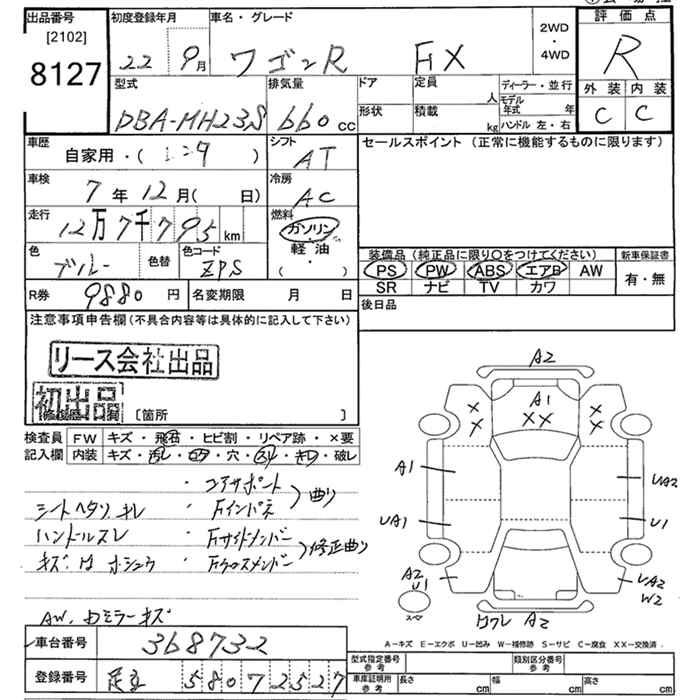 出品番号 初度登録年月 車名・グレード 2WD・4WD 評価点
[2102]
8127 22 9月 ワゴンR FX R
型式 排気量 ドア 定員 人 ディーラー・並行 外装 内装
DBA-MH23S 660cc 形状 積載 kg モデル年式 年 ハンドル 左・右 C C
車歴 自家用・(レンタ) シフト AT セールスポイント (正常に機能するものに限ります)
車検 7年12月(日) 冷房 AC
走行 12万7千795km 燃料 ガソリン・軽油・( )
色 ブルー 色替 色コード ZPS
装備品 (純正品に限り○をつけてください) 新車保証書
PS PW ABS エアB AW 有・無
SR ナビ TV カワ
R券 9880円 名変期限 月 日 後日品
注意事項申告欄(不具合内容等は具体的に記入して下さい)
リース会社出品
初出品
[箇所 ]
検査員 FW キズ・飛石・ヒビ割・リペア跡・×要
記入欄 内装 キズ・汚レ・コゲ・穴・スレ・キレ・破レ
・コアサポート
シートヘタリ キレ ・Fインパネ 曲り
ハンドルスレ ・Fサイドメンバー
・Fクロスメンバー 修正曲り
AW. ドミラーキズ
A2
A1
×× ×× ××
A1 UA2
UA1 U1
A2 U1 UA2 W2
スペア A2
A=キズ E=エクボ U=凹み W=補修跡 S=サビ C=腐食 XX=交換済
車台番号 368732
登録番号 足立 580 7 2527
型式指定番号 参考 類別区分番号 参考
車庫証明用 参考 長さ cm 幅 cm 高さ cm